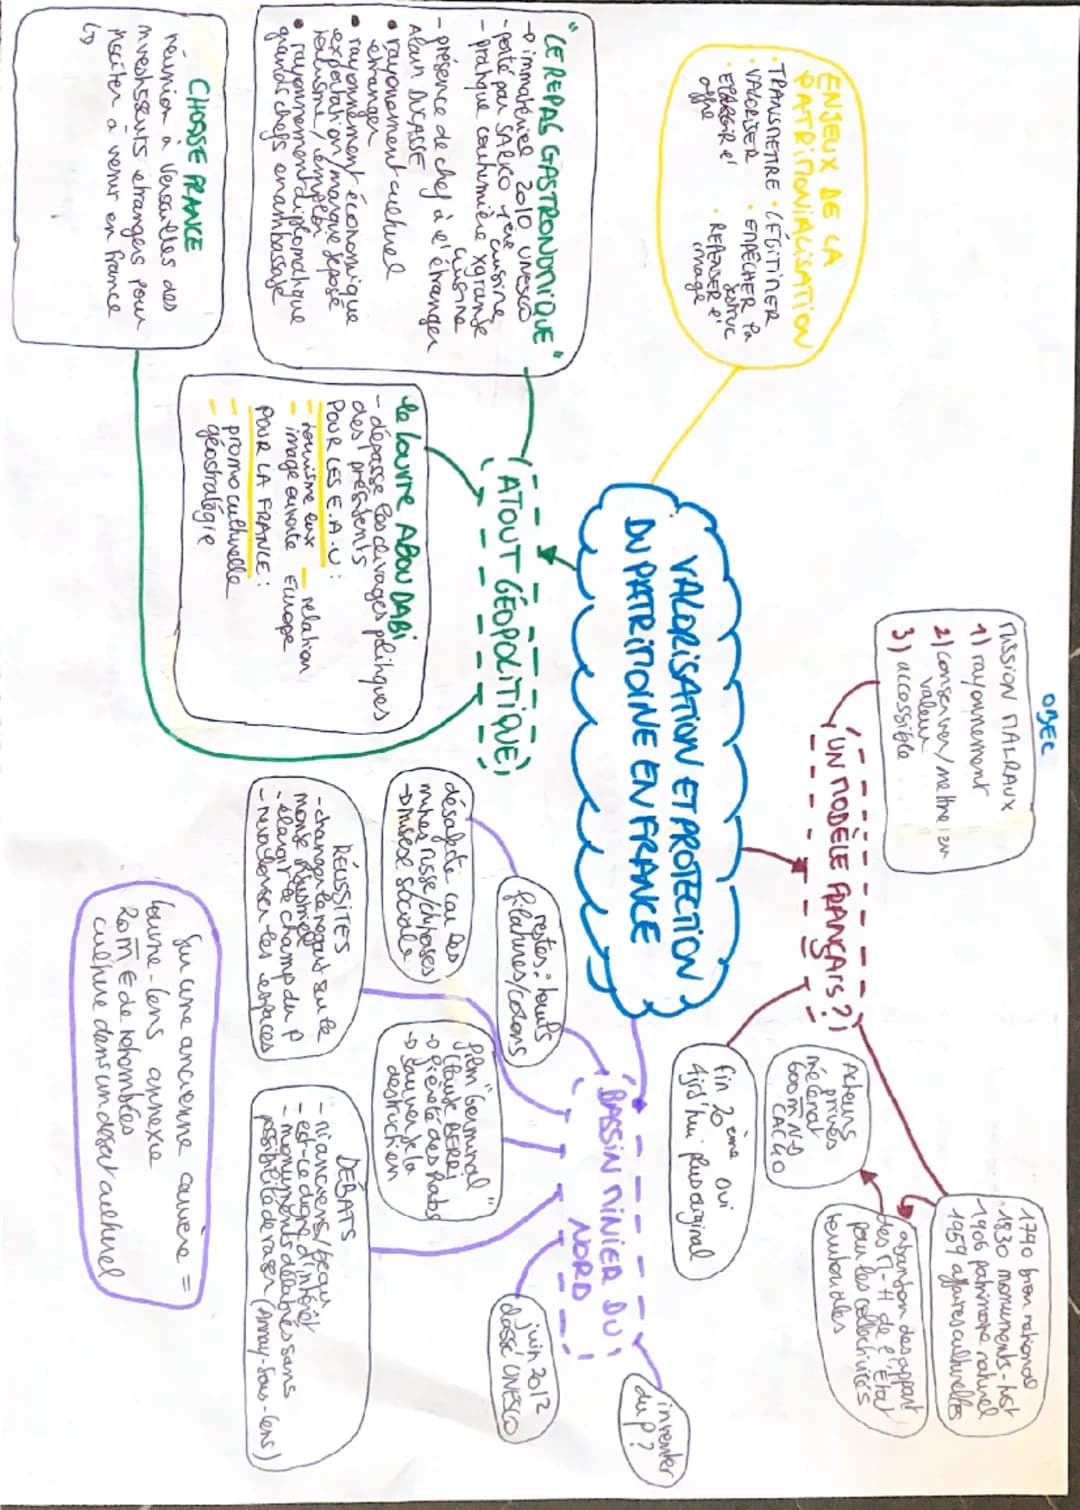 VALORISATION ET PROTECTION
DU PATRIMOINE EN FRANCE
ENJEUX DE LA
PATRIMONIALISATION
• TRANSMETTRE • LÉGITIMER
• VALORISER • EMPÊCHER la
destruc
• ELARGIR l'
offre
• REPENSER l'
image
OBEC
MISSION MALRAUX
1) rayonnement
2) conserver/mettre en
valeur
3) accessible
(UN MODÈLE FRANÇAIS?)
1790 bien national
1830 monuments-hist
1906 patrimoine naturel
1959 affaires culturelles
abandon des appart
des M-H de l'État
pour les collectivités
territoriales
Acteurs
privés
mécénat
600 m
CAC40
fin 20ème oui
Ajrd'hui plus original
"LE REPAS GASTRONOMIQUE"
→ immatériel 2010 UNESCO
- porté par SARKO 1ère cuisine
- pratique coutumière x grande
cuisine
- présence de chef à l'étranger
Alain DUCASSE
• rayonement culturel
étranger
• rayonnement économique
exportation/marque déposé
tourisme/emploi
• rayonnement diplomatique
grands chefs en ambassade
(ATOUT GÉOPOLITIQUE)
le louvre ABOU DABI
- dépasse les clivages politiques
des présidents
POUR LES E.A.U :
- tourisme lux
- relation
- image ouverte Europe
POUR LA FRANCE :
- promo culturelle
- géostratégie
CHOOSE FRANCE
réunion à Versailles des
investisseurs étrangers pour
inciter à venir en France
(BASSIN MINIER DU
NORD)
inventer
du P?
juin 2012
classé UNESCO
restes : houts
filatures/corons
désafecté car les
mines risse/choses)
→ misère sociale
film "Germinal"
Claude BERRI
→ fierté des habs
→ sauver de la
destruction
RÉUSSITES
- changer le regard sur le
monde industriel
- élargir le champ du P
- revaloriser les espaces
DÉBATS
- récent
- est-ce digne d'intérêt
- monuments délabrés sans
possibilité de raser (Annay-Sous-Lens)
Sur une ancienne carrière =
louvre-lens annexe
20 m € de retombées
culture dans un désert culturel